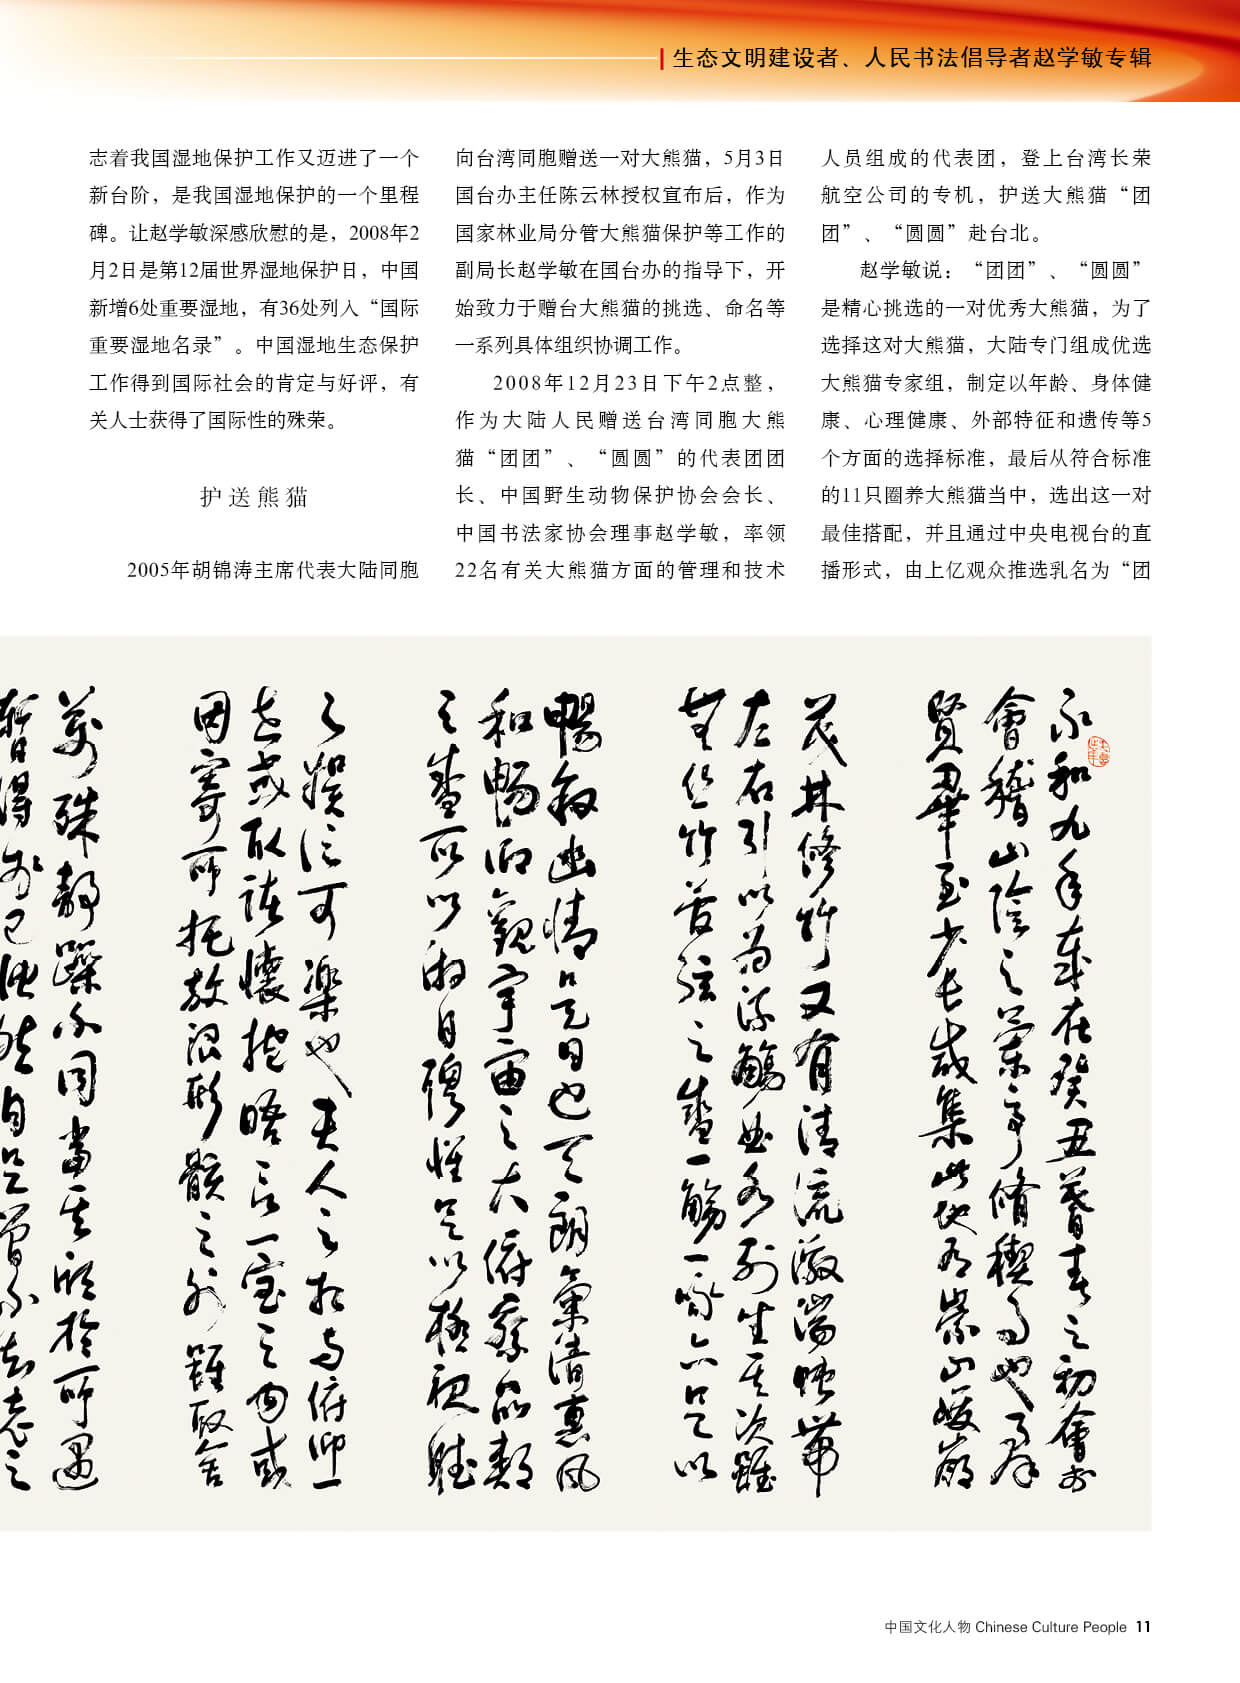 生态文明建设者、人民书法倡导者赵学敏专辑
志着我国湿地保护工作又迈进了一个
新台阶，是我国湿地保护的一个里程
碑。让赵学敏深感欣慰的是，2008年2
月2日是第12届世界湿地保护日，中国
新增6处重要湿地，有36处列入“国际
重要湿地名录”。中国湿地生态保护
工作得到国际社会的肯定与好评，有
关人士获得了国际性的殊荣。
护送熊猫
2005年胡锦涛主席代表大陆同胞
向台湾同胞赠送一对大熊猫，5月3日
国台办主任陈云林授权宣布后，作为
国家林业局分管大熊猫保护等工作的
副局长赵学敏在国台办的指导下，开
始致力于赠台大熊猫的挑选、命名等
一系列具体组织协调工作。
2008年12月23日下午2点整，
作为大陆人民赠送台湾同胞大熊
猫“团团”、“圆圆”的代表团团
长、中国野生动物保护协会会长、
中国书法家协会理事赵学敏，率领
22名有关大熊猫方面的管理和技术
人员组成的代表团，登上台湾长荣
航空公司的专机，护送大熊猫“团
团”、“圆圆”赴台北。
赵学敏说：“团团”、“圆圆”
是精心挑选的一对优秀大熊猫，为了
选择这对大熊猫，大陆专门组成优选
大熊猫专家组，制定以年龄、身体健
康、心理健康、外部特征和遗传等5
个方面的选择标准，最后从符合标准
的11只圈养大熊猫当中，选出这一对
最佳搭配，并且通过中央电视台的直
播形式，由上亿观众推选乳名为“团
永和九年歲在癸丑暮春之初會於
會稽山陰之蘭亭脩禊事也群
賢畢至少長咸集此地有崇山峻嶺
茂林修竹又有清流激湍映帶
左右引以為流觴曲水列坐其次雖
無絲竹管弦之盛一觴一詠亦足以
暢敘幽情是日也天朗氣清惠風
和暢仰觀宇宙之大俯察品類
之盛所以游目騁懷足以極視聽
之娛信可樂也夫人之相與俯仰一
世或取諸懷抱晤言一室之內或
因寄所托放浪形骸之外雖取舍
萬殊靜躁不同當其欣於所遇
暫得於己快然自足曾不知老之
中国文化人物 Chinese Culture People 11